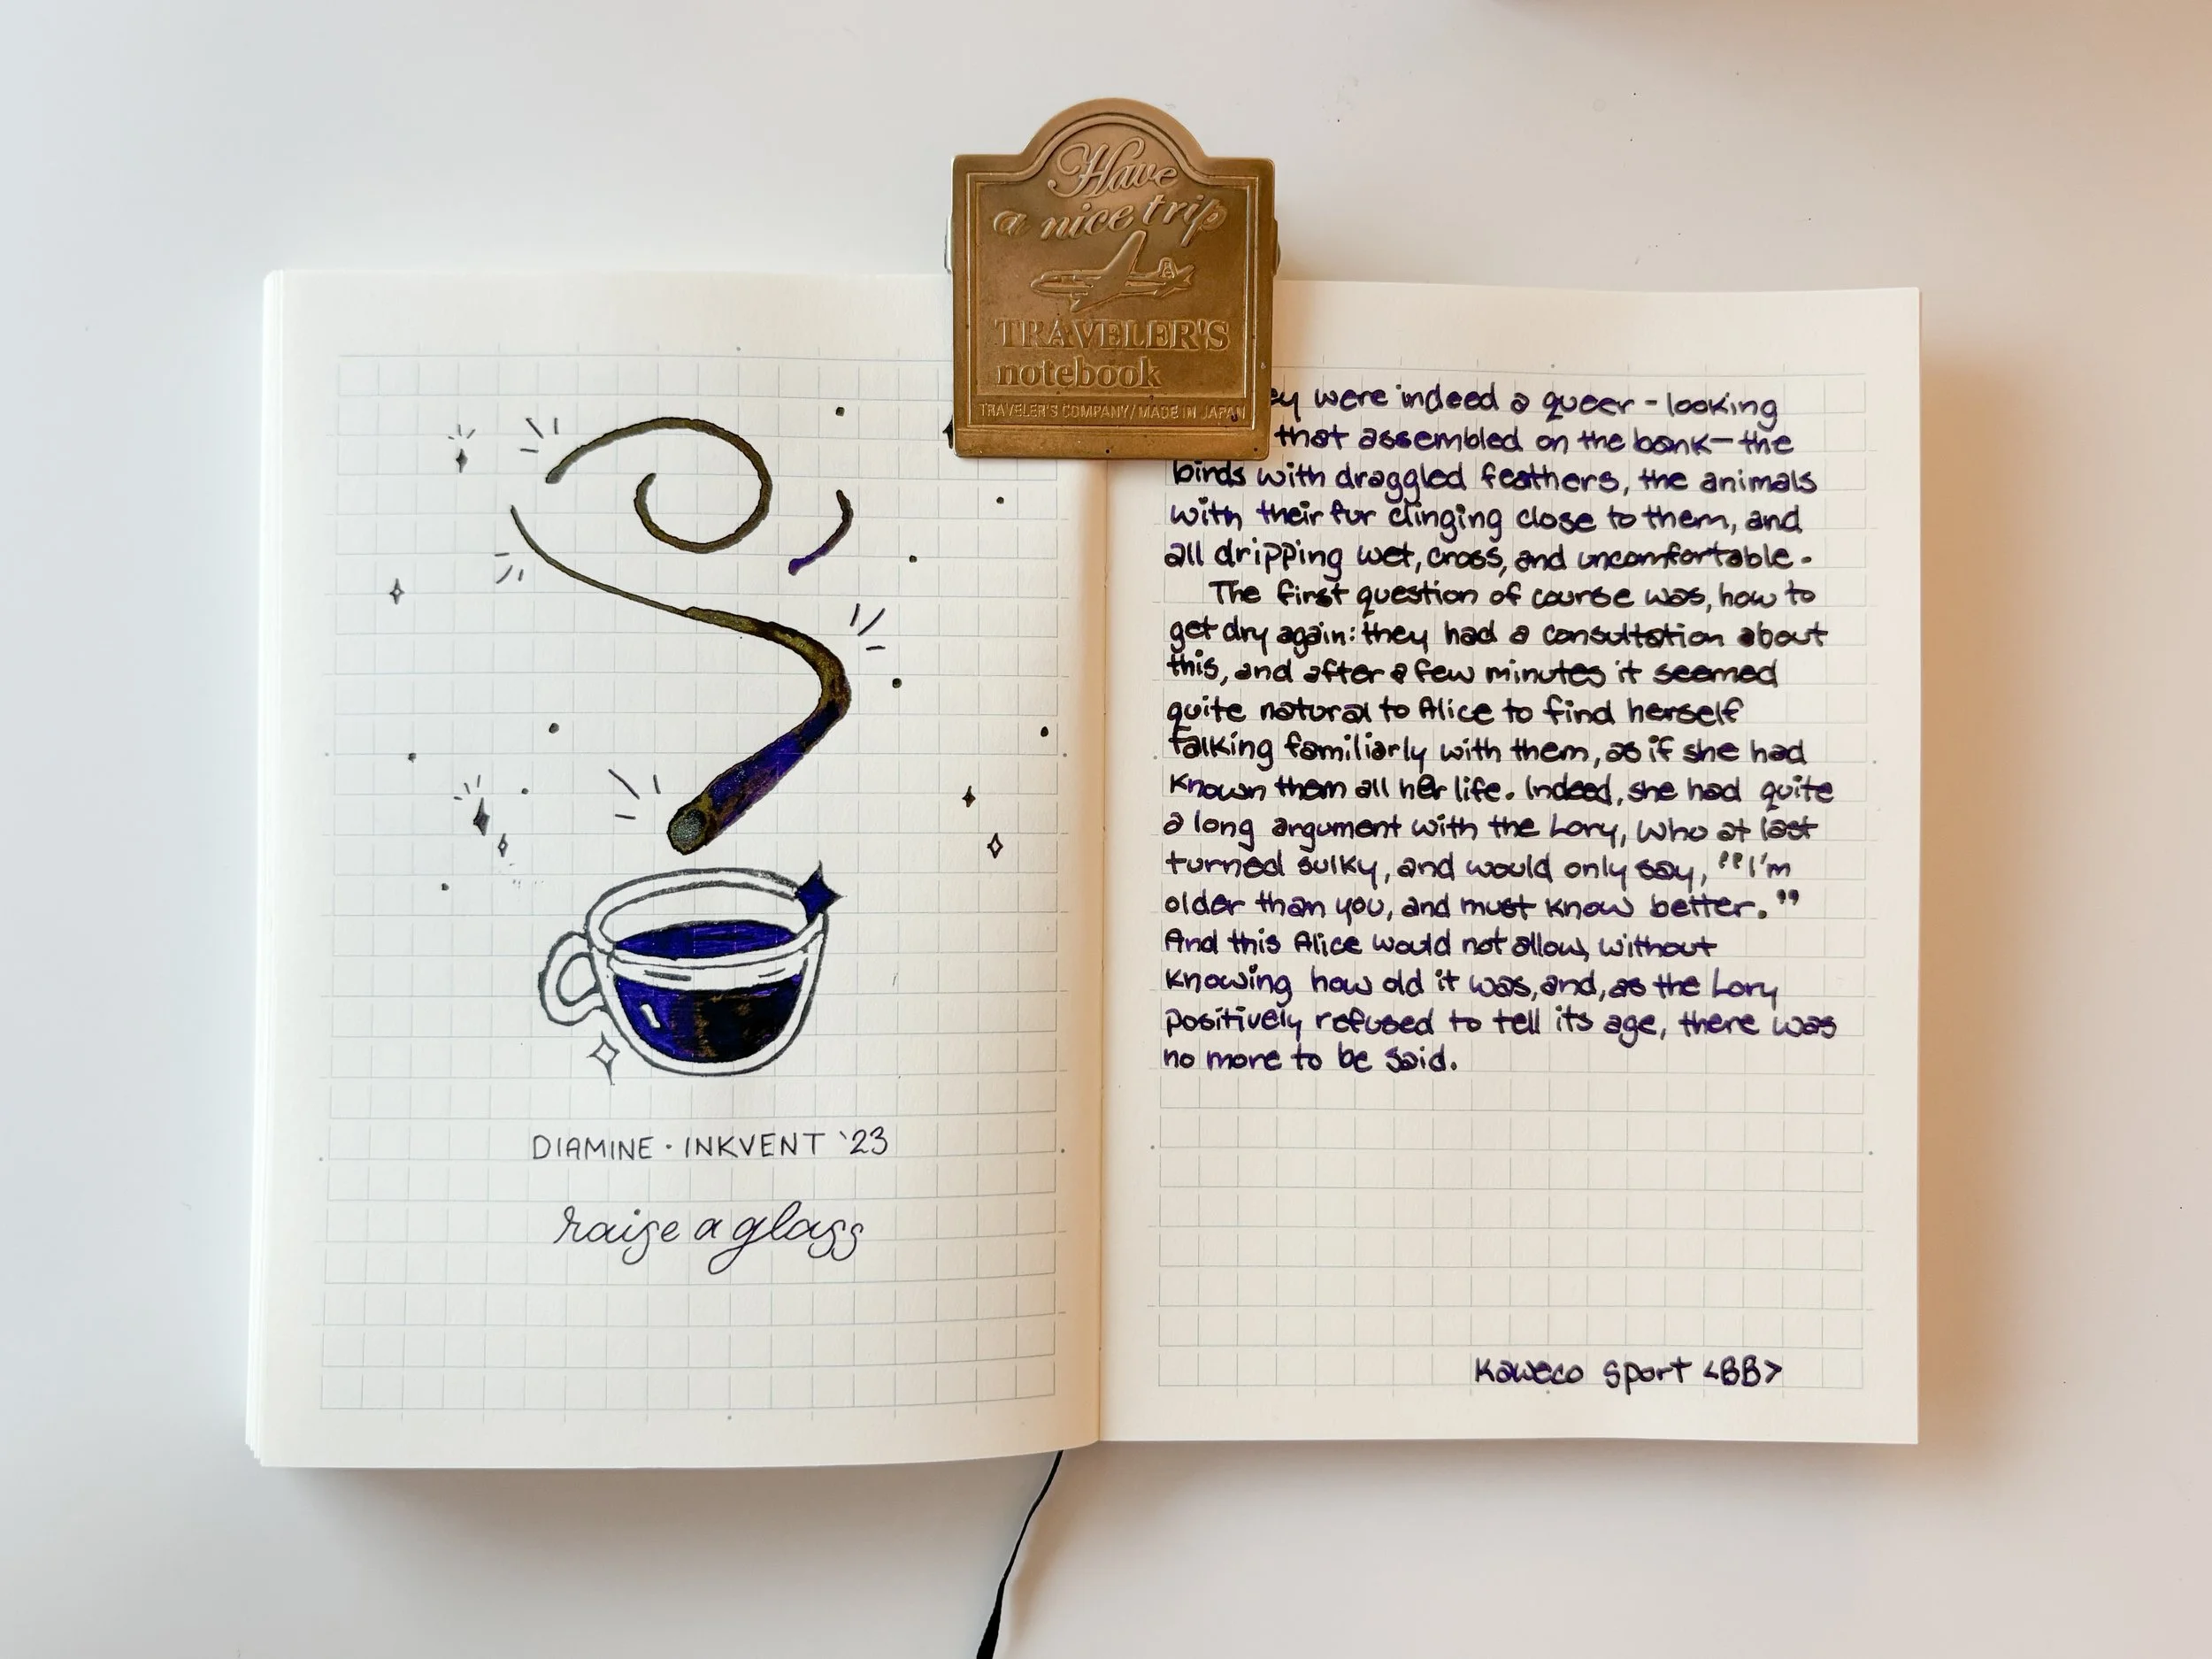 Have
a nice trip
TRAVELER'S
notebook
TRAVELER'S COMPANY/MADE IN JAPAN
DIAMINE · INKVENT '23
raise a glass
ey were indeed a queer-looking
that assembled on the bank—the
birds with draggled feathers, the animals
with their fur clinging close to them, and
all dripping wet, cross, and uncomfortable.
The first question of course was, how to
get dry again: they had a consultation about
this, and after a few minutes it seemed
quite natural to Alice to find herself
talking familiarly with them, as if she had
known them all her life. Indeed, she had quite
a long argument with the Lory, who at last
turned sulky, and would only say, "I'm
older than you, and must know better."
And this Alice would not allow, without
knowing how old it was, and, as the Lory
positively refused to tell its age, there was
no more to be said.
Kaweco Sport <BB>